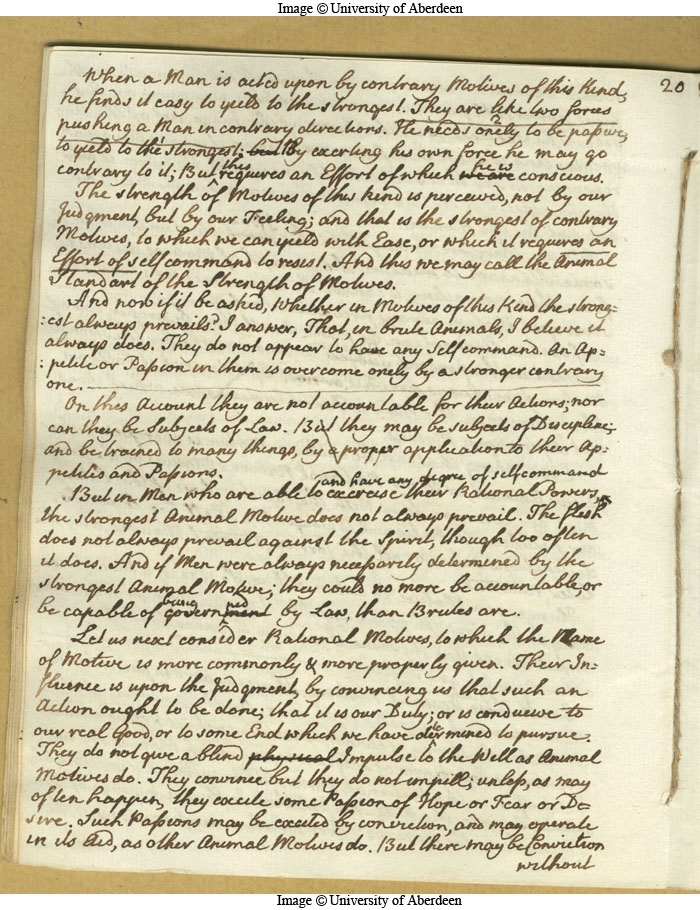 Image © University of Aberdeen
20
When a Man is acted upon by contrary Motives of this Kind,
he finds it easy to yield to the strongest. They are like two forces
pushing a Man in contrary directions. He needs onely to be passive,
to yield to the strongest; but By exerting his own force he may go
contrary to it; But this requires an Effort of which we are he is conscious.
The strength of Motives of this kind is perceived, not by our
Judgment, but by our Feeling; and that is the strongest of contrary
Motives, to which we can yield with Ease, or which it requires an
Effort of self command to resist. And this we may call the Animal
Standart of the Strength of Motives.
And now if it be asked, Whether in Motives of this Kind the strong=
:est always prevails? I answer, That, in brute Animals, I believe it
always does. They do not appear to have any Self command. An Ap=
:petite or Passion in them is overcome onely by a stronger contrary
one.
On this Account they are not accountable for their Actions; nor
can they be Subjects of Law. But they may be subjects of Discipline;
and be trained to many things, by a proper application to their Ap=
:petites and Passions.
and have any degree of self command
But in Men who are able to exercise their Rational Powers,
the strongest Animal Motive does not always prevail. The flesh
does not always prevail against the Spirit, though too often
it does. And if Men were always necessarily determined by the
strongest Animal Motive; they could no more be accountable, or
be capable of being governed by Law, than Brutes are.
Let us next consider Rational Motives, to which the Name
of Motive is more commonly & more properly given. Their In=
fluence is upon the Judgment, by convincing us that such an
Action ought to be done; that it is our Duty; or is conducive to
our real Good, or to some End which we have determined to pursue.
They do not give a blind physical Impulse to the Will as Animal
Motives do. They convince but they do not impell; unless, as may
often happen, they excite some Passion of Hope or Fear or De=
sire. Such Passions may be excited by conviction, and may operate
in its Aid, as other Animal Motives do. But there may be Conviction
without
Image © University of Aberdeen